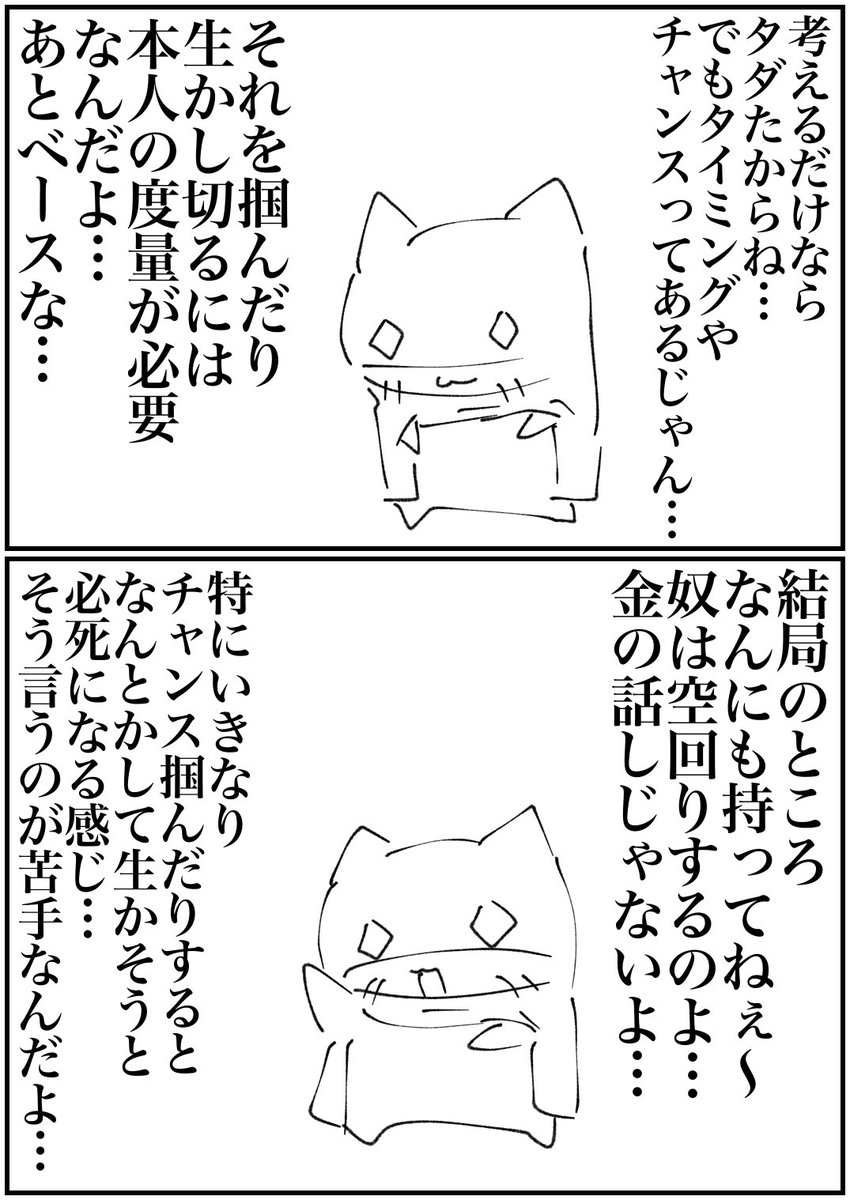 考えるだけなら
タダたからね…
でもタイミングや
チャンスってあるじゃん…
それを掴んだり
生かし切るには
本人の度量が必要
なんだよ…
あとベースな…
結局のところ
なんにも持ってねぇ～
奴は空回りするのよ…
金の話しじゃないよ…
特にいきなり
チャンス掴んだりすると
なんとかして生かそうと
必死になる感じ…
そう言うのが苦手なんだよ…